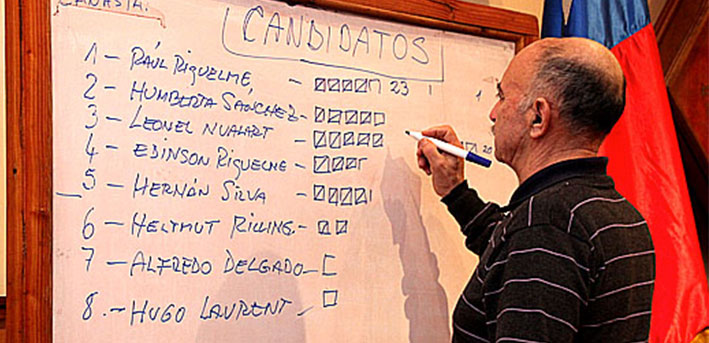 CANASTA.
CANDIDATOS
1 - RAÚL RIQUELME, - 23
2 - HUMBERTA SÁNCHEZ -
3 - LEONEL NUALART -
4 - EDINSON RIQUELME -
5 - HERNÁN SILVA -
6 - HELTMUT RILLING. -
7 - ALFREDO DELGADO -
8.- HUGO LAURENT -